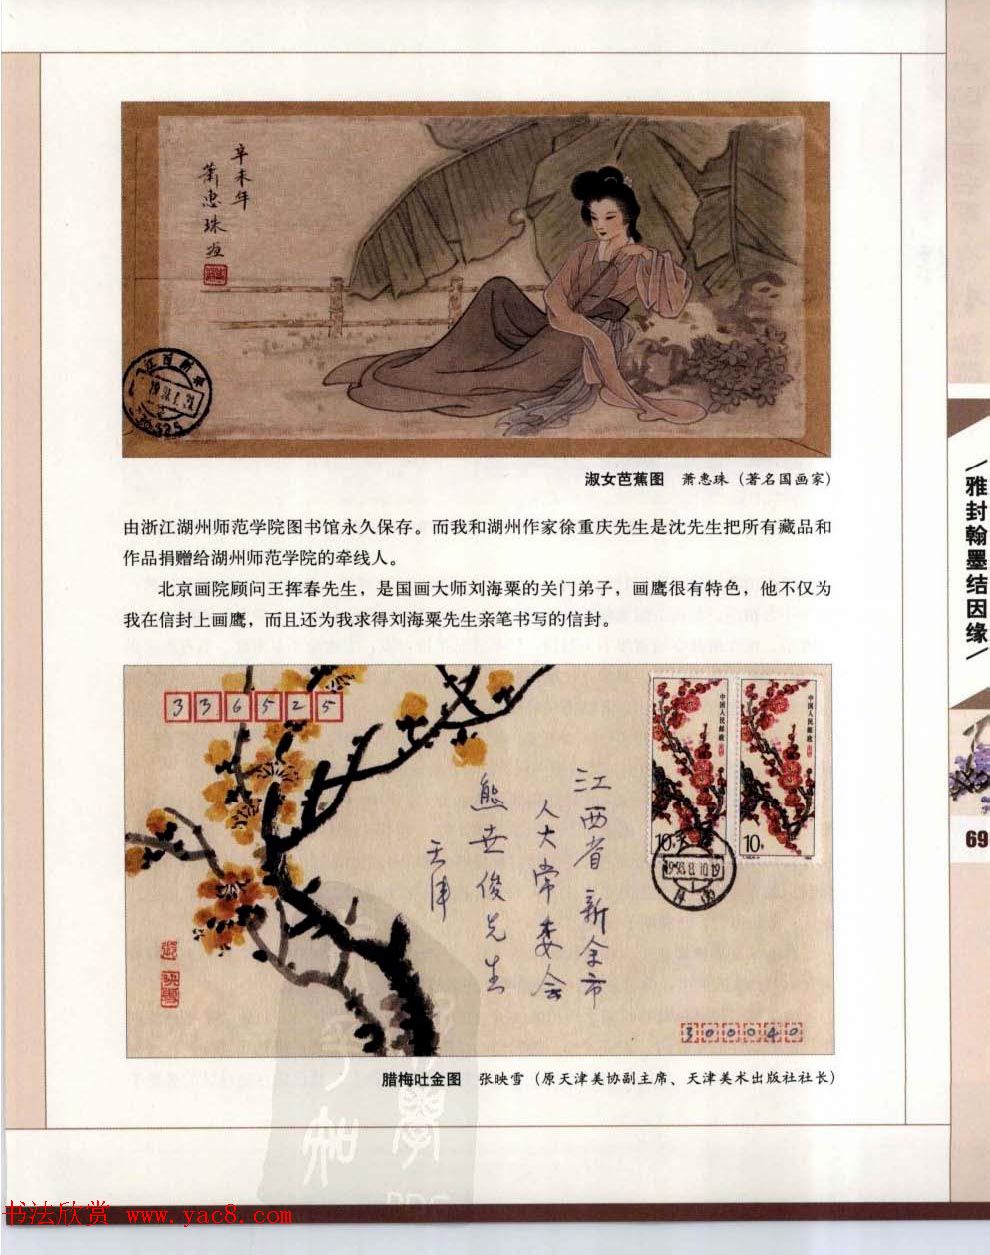 辛未年
萧惠珠画
江西
336525
淑女芭蕉图 萧惠珠(著名国画家)
由浙江湖州师范学院图书馆永久保存。而我和湖州作家徐重庆先生是沈先生把所有藏品和
作品捐赠给湖州师范学院的牵线人。
北京画院顾问王挥春先生,是国画大师刘海粟的关门弟子,画鹰很有特色,他不仅为
我在信封上画鹰,而且还为我求得刘海粟先生亲笔书写的信封。
336525
中国人民邮政
10分
中国人民邮政
10分
江西省新余市
人大常委会
熊世俊先生
天津
映雪
300040
腊梅吐金图 张映雪(原天津美协副主席、天津美术出版社社长)
雅封翰墨结因缘
69
书法欣赏 www.yac8.com